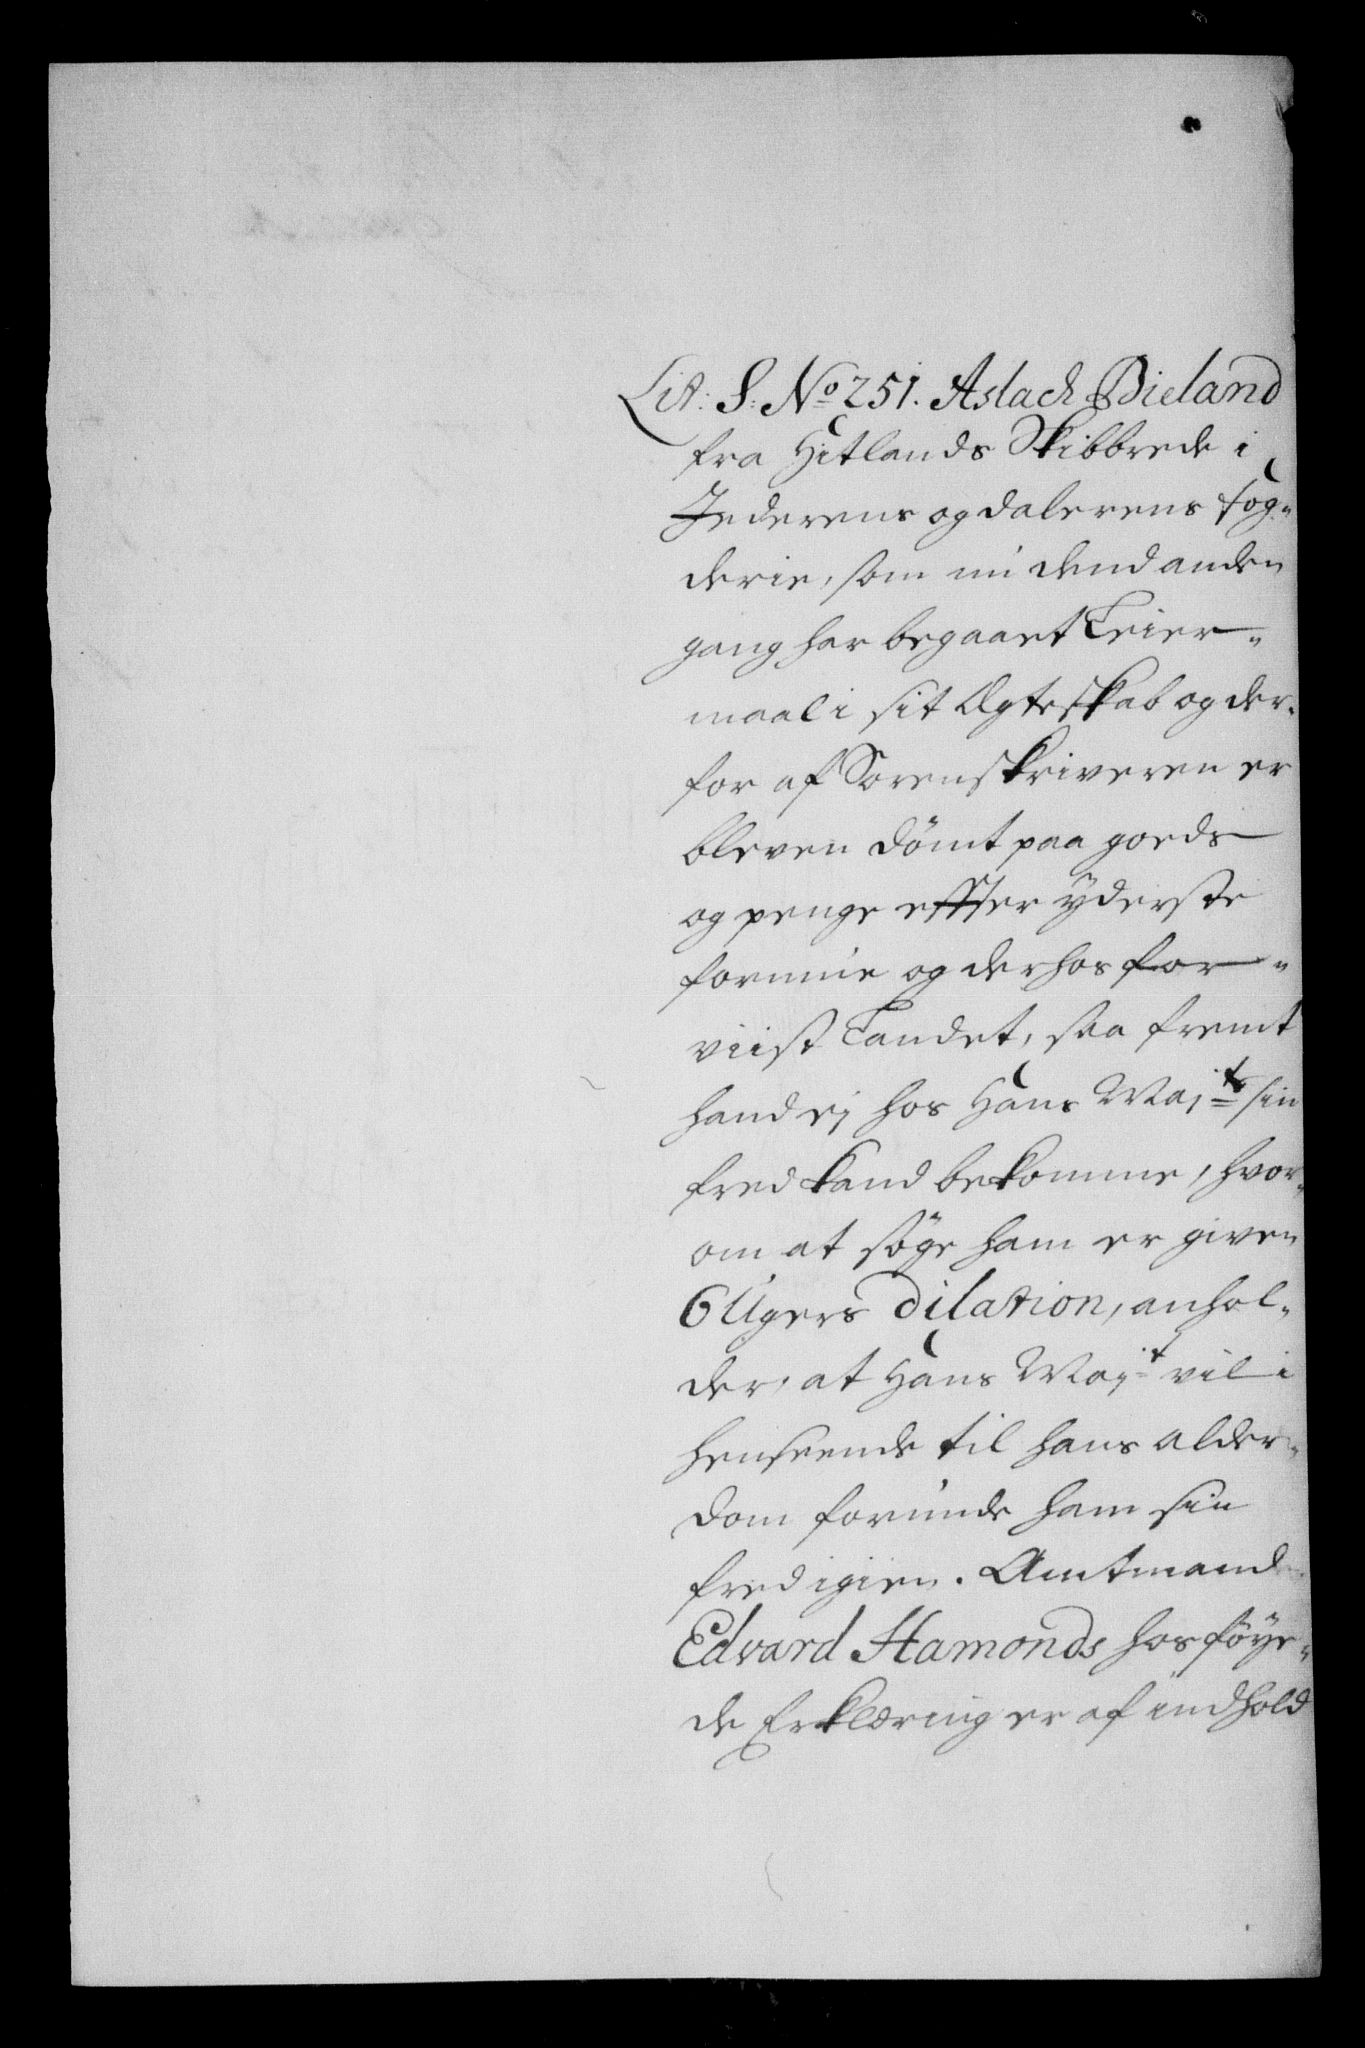 Lit: S: No 251. Aslach Bieland
fra Hitlands Skibbrede i
Jederens og dalerens fog-
derie, som nu dend anden
gang har begaaet Leier-
maal i sit Ægteskab og der-
for af Sorenskriveren er
bleven dömt paa goeds
og penge effter yderste
formue og derhos for-
viist Landet, saa fremt
hand ej hos Hans Majts sin
fred kand bekomme, hvor-
om at söge ham er given
6 Ugers dilation, anhol-
der, at Hans Majt vil i
henseende til hans alder-
dom forunde ham sin
fred igien. Amtmand
Edvard Hamonds hosföye-
de Erklæring er af indhold